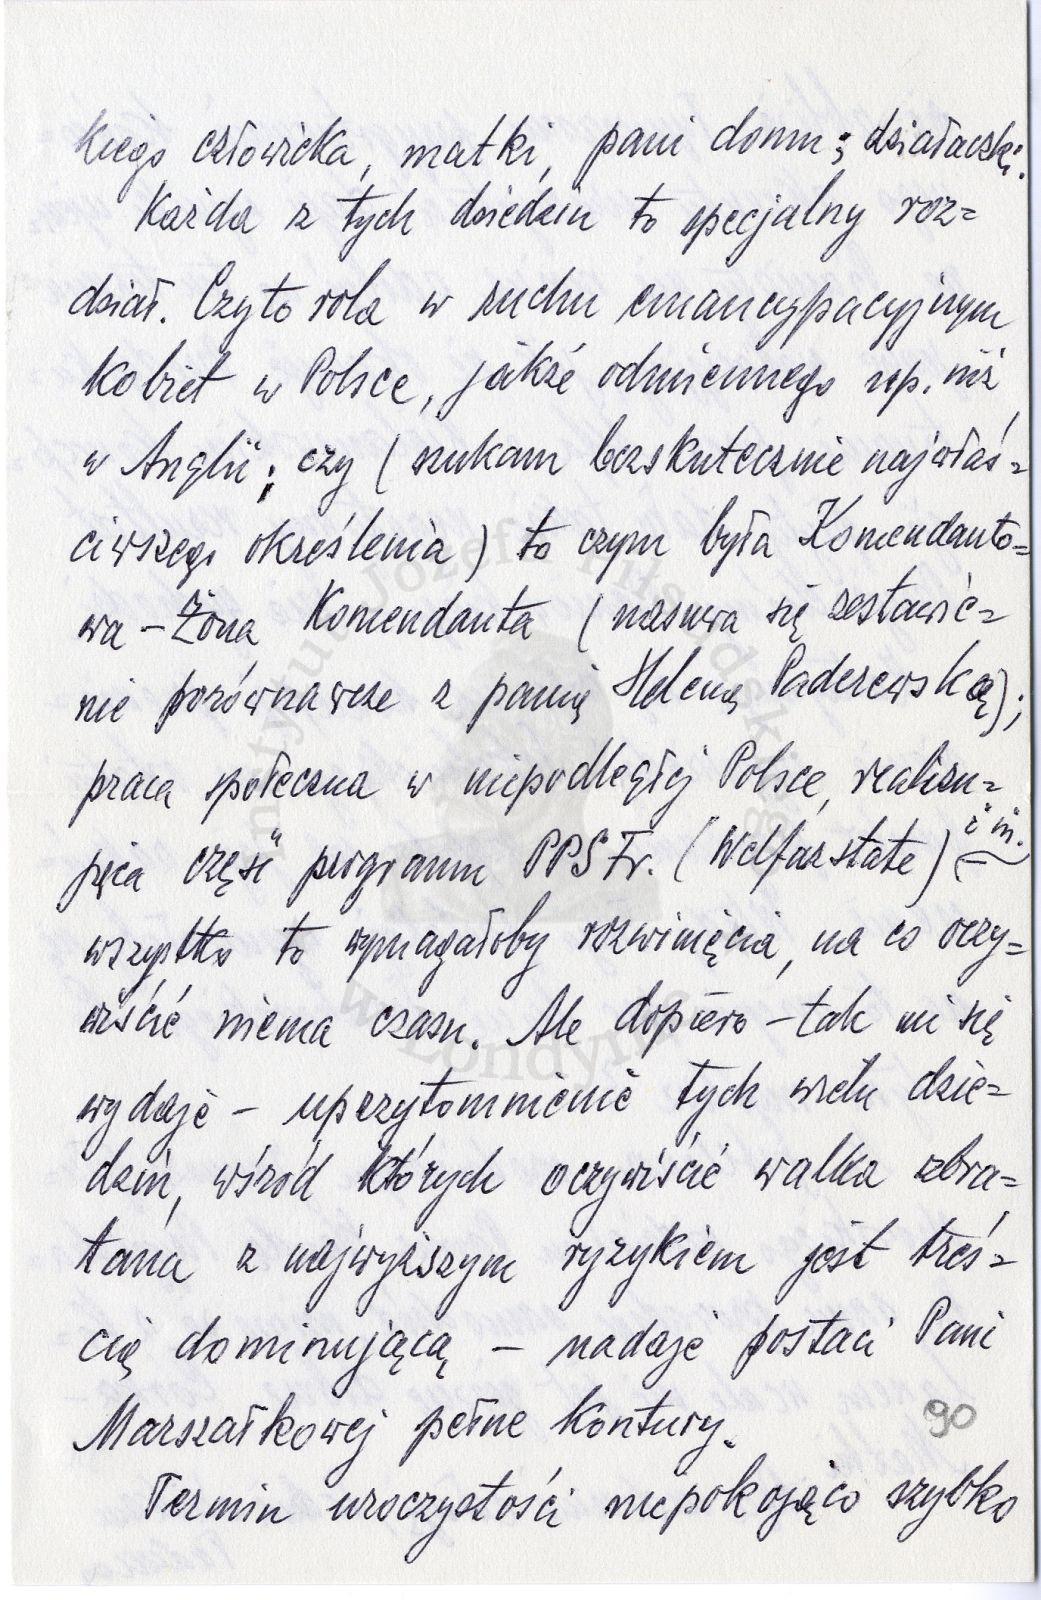 kiego człowieka, matki, pani domu; działaczki.
Każda z tych dziedzin to specjalny roz=
dział. Czy to rola w ruchu emancypacyjnym
kobiet w Polsce, jakże odmiennego np. niż
w Anglii; czy (szukam bezskutecznie najwłaś=
ciwszego określenia) to czym była Komendanto=
wa – Żona Komendanta (nasuwa się zestawie=
nie porównawcze z panią Heleną Paderewską);
praca społeczna w niepodległej Polsce, realizu=
jąca część programu PPS Fr. (Welfar state) – i in.
wszystko to wymagałoby rozwinięcia, na co oczy=
wiście niema czasu. Ale dopiero – tak mi się
wydaje – uprzytomnienie tych wielu dzie=
dzin, wśród których oczywiście walka zbro=
jna z najwyższym ryzykiem jest treś=
cią dominującą – nadaje postaci Pani
Marszałkowej pełne kontury.
90
Termin uroczystości niepokojąco szybko
Instytut Józefa Piłsudskiego
w Londynie